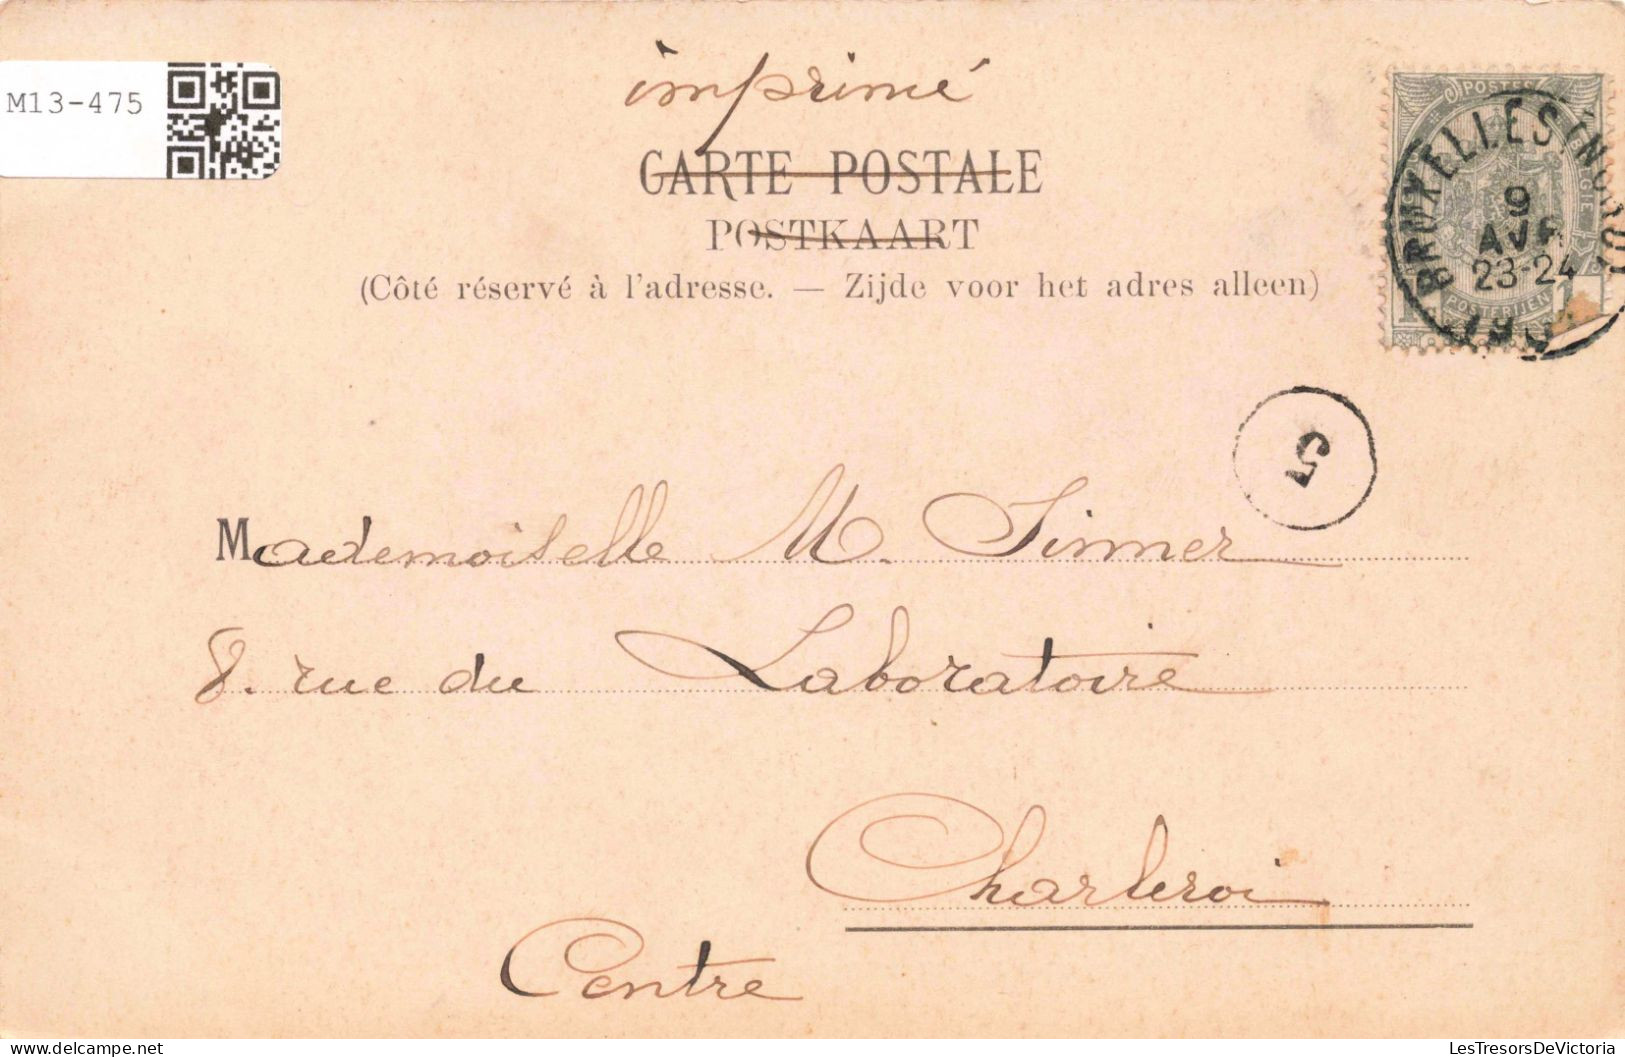 M13-475
imprimé
CARTE POSTALE
POSTKAART
(Côté réservé à l'adresse. — Zijde voor het adres alleen)
BRUXELLES (NORD)
9
AVR
23-24
POSTERIJEN
5
Mademoiselle M. Sinner
8. rue du Laboratoire
Charleroi
Centre
delcampe.net
LesTresorsDeVictoria